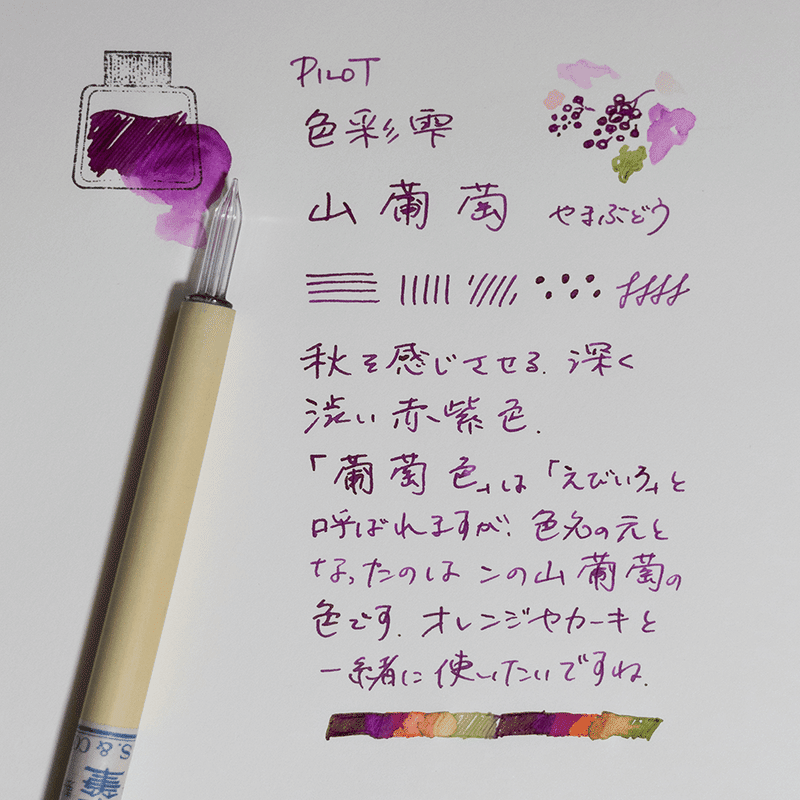 PILOT
色彩雫
山葡萄 やまぶどう
秋を感じさせる. 深く
渋い赤紫色.
「葡萄色」は「えびいろ」と
呼ばれますが、色名の元と
なったのはこの山葡萄の
色です. オレンジやカーキと
一緒に使いたいですね.
S. & CO
筆